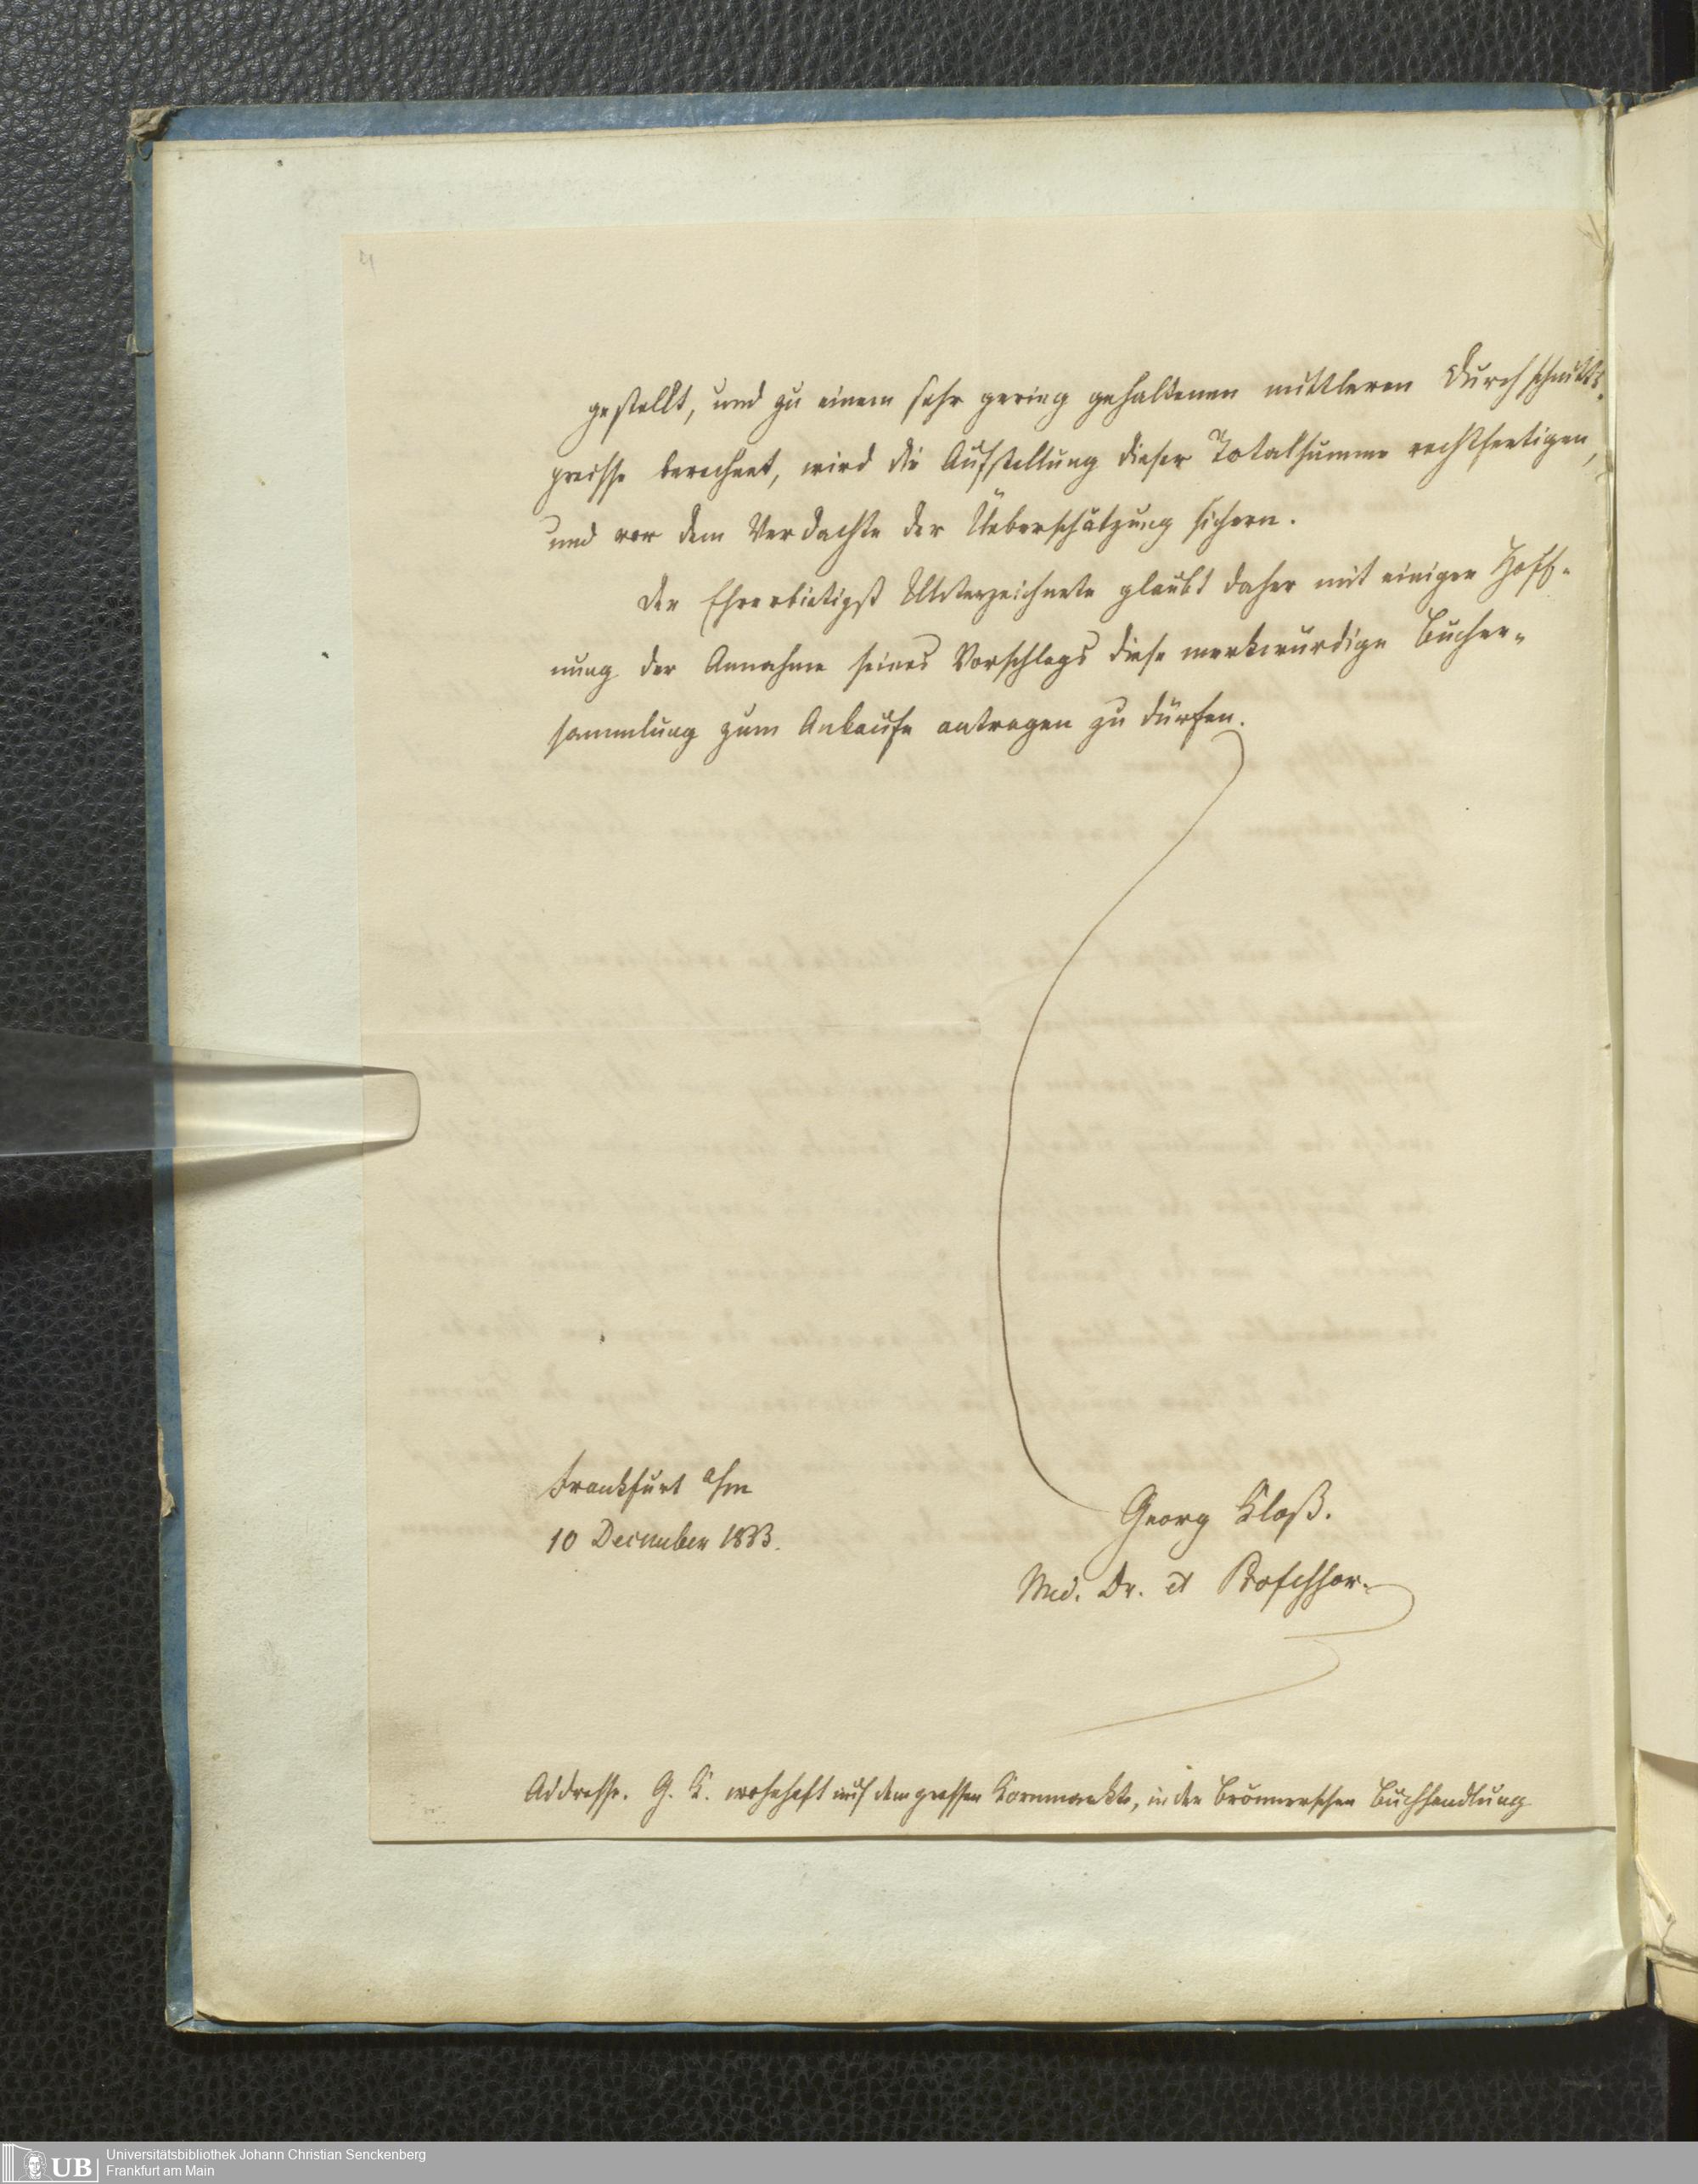 gestellt, und zu einem sehr gering gehaltenen mittleren Durchschnitts-
preisse berechnet, wird die Aufstellung dieser Totalsumme rechtfertigen,
und vor dem Verdachte der Üeberschätzung sichern.
Der Ehrerbietigst Unterzeichnete glaubt daher mit einiger Hoff-
nung der Annahme seines Vorschlags diese merkwürdige Bücher-
sammlung zum Ankaufe antragen zu dürfen.
Frankfurt a/m
10 December 1833.
Georg Kloß.
Med. Dr. et Professor.
Addresse. G. K. wohnhaft auf dem grossen Kornmarkte, in der Brönnerschen Buchhandlung
UB
Universitätsbibliothek Johann Christian Senckenberg
Frankfurt am Main